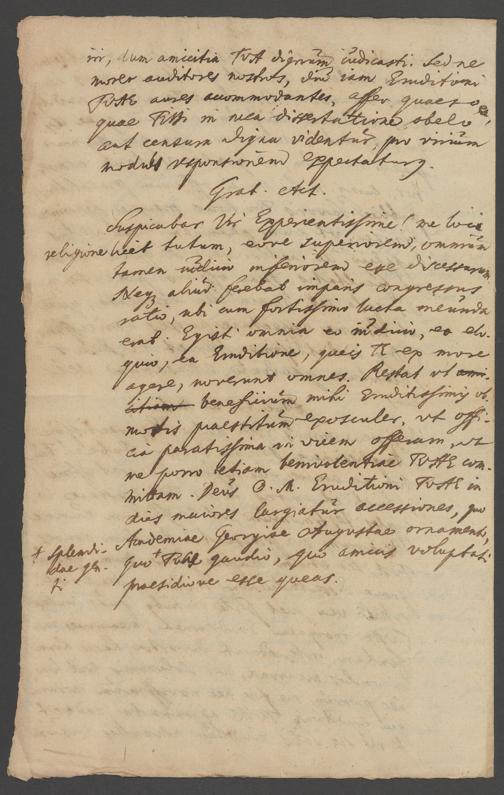 rir, dum amicitia TUA dignum iudicasti. Sed ne
morer auditores nostros, dum iam Eruditioni
TUAE aures accommodantes, affer, quaeso ea,
quae TIBI in mea dissertatione obelo
aut censura digna videntur, pro virium
modulo responsionem expectaturus.
Grat. Act.
Suspicabar Vir Experientissime! me loci
religione licet tutum, eove superiorem, omnium
tamen iudicio inferiorem esse discessurum
Neq aliud ferebat impans congressus
ratio, ubi cum fortissimo lucta ineunda
erat. Egisti omnia eo iudicio, eo elo-
quio, ea Eruditione, queis TE ex more
agere, noverunt omnes. Restat ut ami-
citiam beneficium mihi Eruditissimis ob-
motis praestitum exosculer, ut offi-
cia paratissima in vicem offeram, ut
me porro etiam benivolentiae TUAE com-
mittam. Deus O. M. Eruditioni TUAE in
dies maiores largiatur accessiones, quo
Academiae Georgiae Augustae ornamento,
+ splendi-
dae gen-
ti
quo + TUAE gaudio, quo amicis voluptati
praesidiove esse queas.